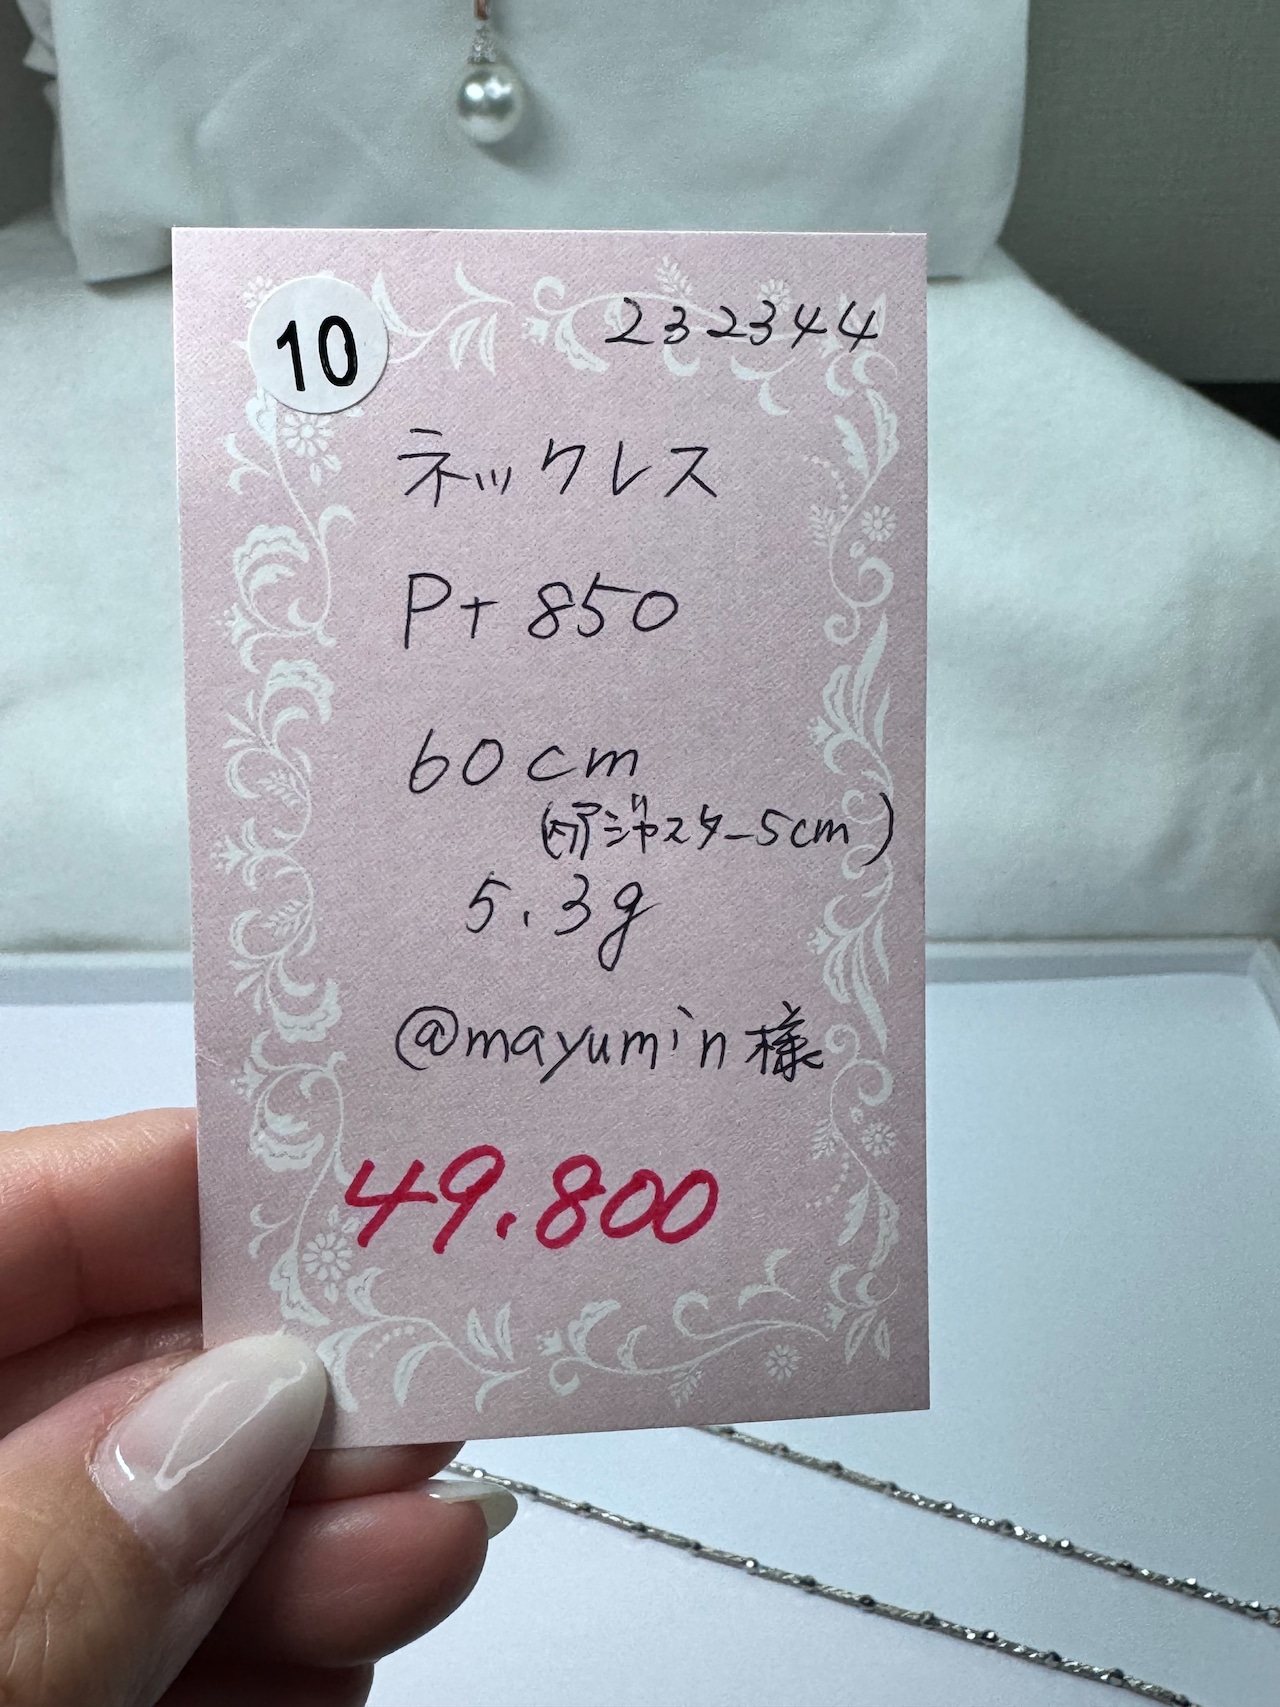 10
232344
ネックレス
Pt 850
60cm
(内アジャスター5cm)
5.3g
@mayumin様
49.800